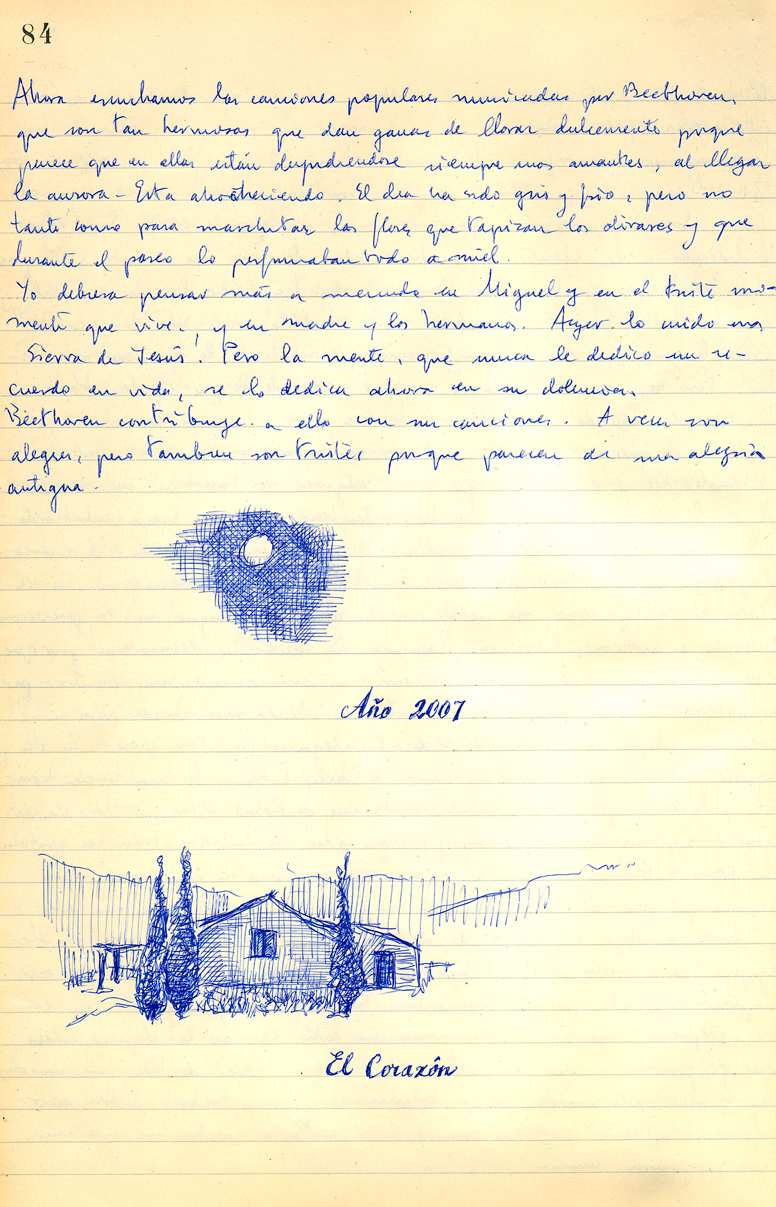 84
Ahora escuchamos las canciones populares musicadas por Beethoven,
que son tan hermosas que dan ganas de llorar dulcemente porque
parece que en ellas están despidiéndose siempre unos amantes, al llegar
la aurora - Esta anocheciendo. El dia ha sido gris y frio, pero no
tanto como para marchitar las flores que tapizan los olivares y que
durante el paseo lo perfumaban todo a miel.
Yo debiera pensar más a menudo en Miguel y en el triste mo-
mento que vive, y en madre y los hermanos. Ayer lo
Sierra de Jesús! Pero la mente, que nunca le dedico un re-
cuerdo en vida, se lo dedica ahora en su
Beethoven contribuye a ello con sus canciones. A veces son
alegres, pero tambien son tristes porque parecen de una alegria
antigua.
Año 2007
El Corazón